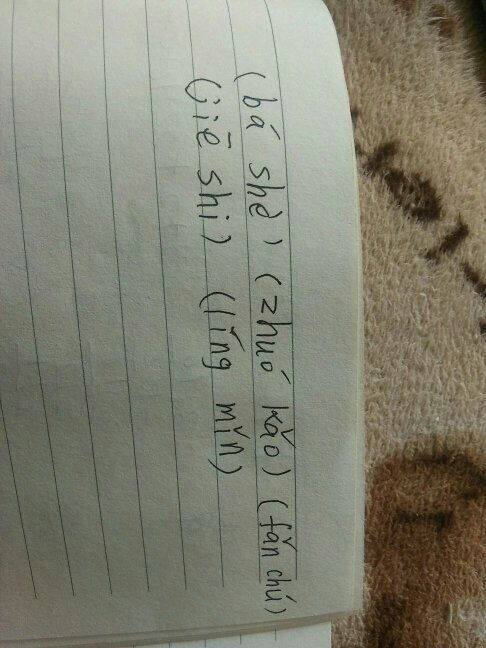 (bá shè) (zhuó kǎo) (fǎn chú)
(jiē shi) (līng mǐn)